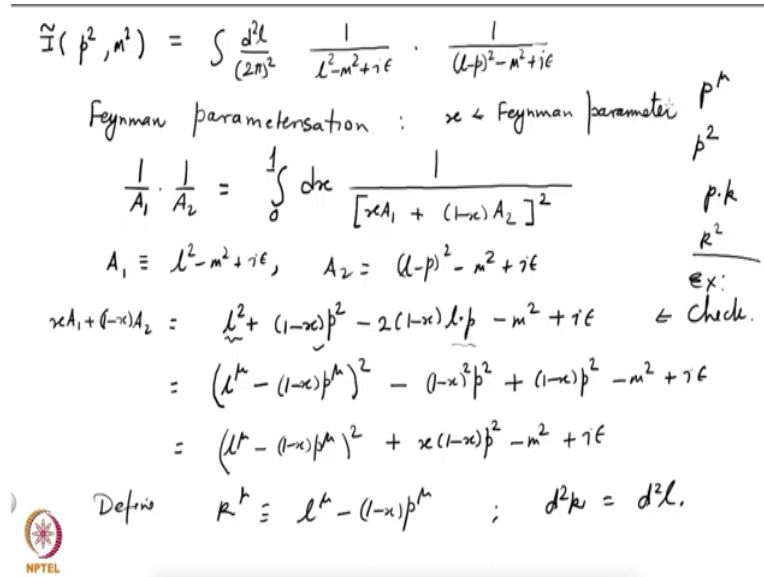 Ĩ(p², m²) = ∫ d²l/(2π)² 1/(l²-m²+iϵ) · 1/((l-p)²-m²+iϵ)
Feynman parameterisation : x ← Feynman parameter
p^μ
p²
p.k
k²
1/A₁ · 1/A₂ = ∫₀¹ dx 1/[xA₁ + (1-x)A₂]²
A₁ ≡ l²-m²+iϵ, A₂ = (l-p)² - m² + iϵ
Ex:
xA₁+(1-x)A₂ = l² + (1-x)p² - 2(1-x) l.p - m² + iϵ ← Check.
= (l^μ - (1-x)p^μ)² - (1-x)²p² + (1-x)p² - m² + iϵ
= (l^μ - (1-x)p^μ)² + x(1-x)p² - m² + iϵ
Define k^μ ≡ l^μ - (1-x)p^μ ; d²k = d²l.
NPTEL